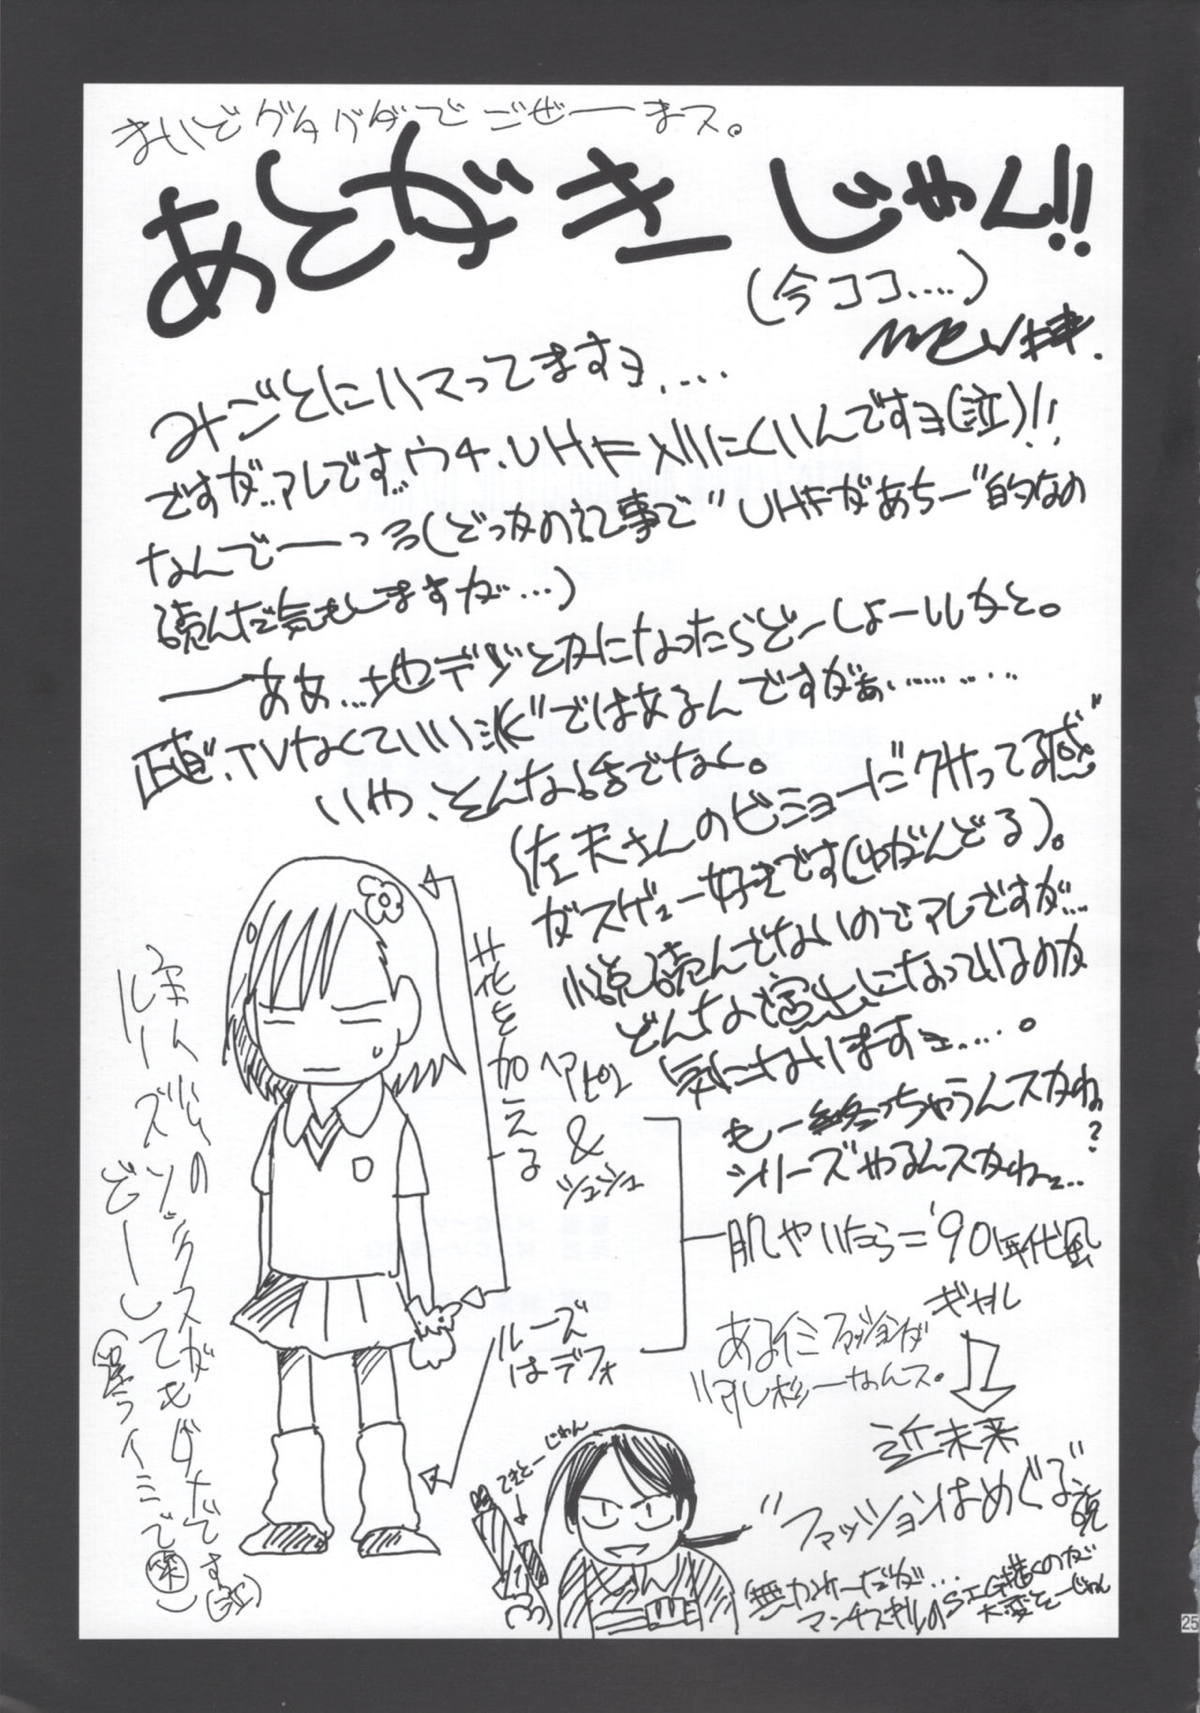 まいどグダグダでごぜーまス。
あとがきじゃん!!
(今ココ....)
みごとにハマってますヨ....
ですが..アレです..ウチ、UHF入りにくいんですヨ(泣)!!
なんでーっろ(どっかの記事で"UHFがあちー"的なの
読んだ気もしますが...)
ーああ...地デジとかになったらどーしよーいかと。
正直、TVなくていい派"ではあるんですがぁ.........
いや、そんな話でなく。
(佐天さんのビミョーに"クサってる感"
がスゲェー好きです(ゆがんどる)。
小説読んでないのでアレですが...
どんな演出になっているのか
気になりますョ.....。
もー終っちゃうんスかね?
シリーズやるんスかねェ..
花を加える
ヘアピン
&
シュシュ
肌やいたら='90年代風
ギャル
ルーズ
はデフォ
あるイミファッションが
近未来
"ファッションはめぐる"説
てきとーじゃん
無カンケーだが...
マンチズキルのSIG描くのが
大変そーじゃん
ルーズソックスがどーしてもダメです(泣)